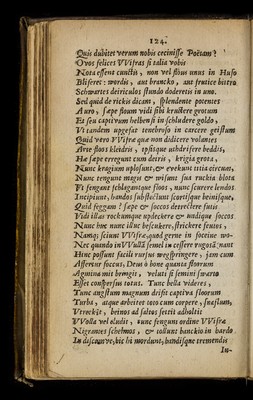 124.
Quis dubitet verum nobis ceciniſſe Poëtam?
O vos felices VVifras ſi talia vobis
Nota eſſent cunctis, non vel ſlöus unus in Huſo
Bliferet: wordis, aut brancko, aut ſrutice bistro
Schwartes deiriculos ſtundo doderetis in uno.
Sed quid de rickis dicam, ſplendente potentes
Auro, ſæpe ſlorum vidi ſibi kruſtere grotum
Et ſeu capitrum helbenſt in ſchluldere goldo,
Vt tandem upgeſat tenebroſo in carcere getſtum
Quid vero VVifræ quæ non didicere volantes
Arve ſloos kleidris, upſque uthdriſere beddis,
Hæ ſæpe erregunt cum detris, krigia grota,
Nunc kragium uplöſunt, & erekunt ittia circum,
Nunc tengunt magie & wiſunt ſua ruckia blota
Vt ſengant ſchlagantque ſloos, nunc ſcurere lendos
Incipiunt, handos ſubſtockunt ſcortiſque beiniſque,
Quid ſeggam? ſæpe & ſoccos deerecſere ſuis
Vidi illas rockumque updeckere & undique ſoccos
Nunc huc nunc illuc beſcukere, ſtrickere ſnites,
Namq; ſciunt VViſræ quod gerne in ſocciſue wo-
Nec quando in VVullâ ſemel in ceſſere rugoſâ, nant
Hinc poſſunt facili rurſus wegſpringere, jam cum
Aſſerunt ſoccus, Deus ô bone quanta ſloorum
Agmina mit bringis, veluti ſi ſemini ſwarto
Eſſet conſperſus totus. Tunc bella videres,
Tunc angſtum magnum driſit captiva ſloorum
Turba, atque arbeitet toto cum corpore, ſnaſtum,
Vtreckſt, beinos ad ſaltos ſettit adholtis
VVolla vel eludit, tunc ſengum ordine VVifra
Nigrantes ſchelmos, & tollunt banckio in hardo
In diſcum ve, hic hi mordunt, bandiſque tremendis
In-